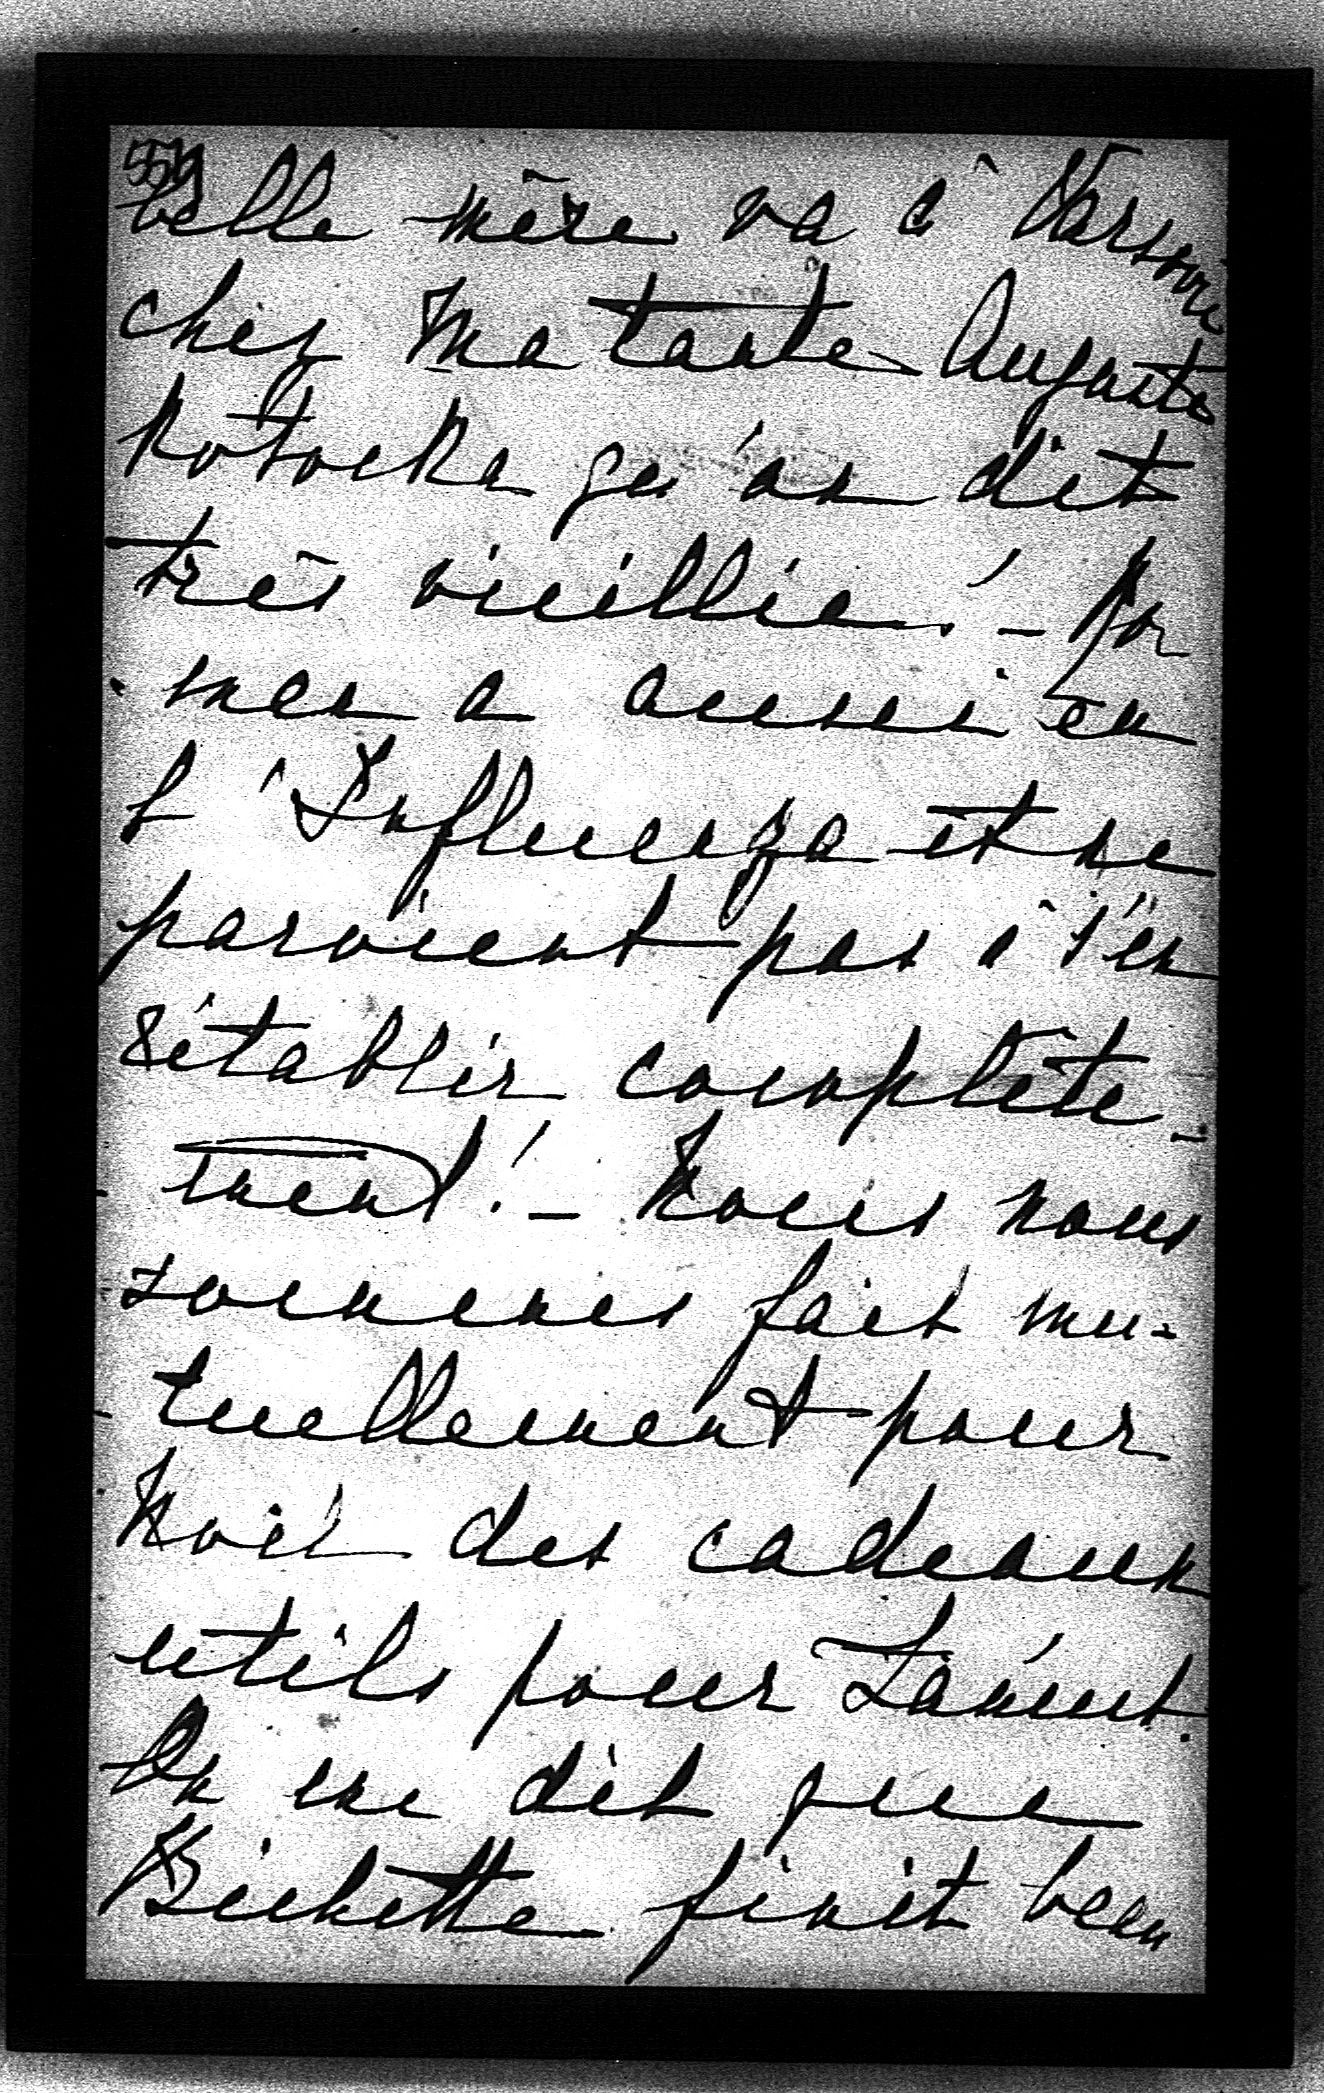 belle mère va à Varsovie
chez ma tante Auguste
Potocka qu'on dit
très vieillie! – Ro
man a aussi eu
l'Influenza et ne
parvient pas à s'en
rétablir complète-
ment! – Nous nous
sommes fait mu-
tuellement pour
Noël des cadeaux
utils pour Łańcut.
On me dit que
Bichette finit beau